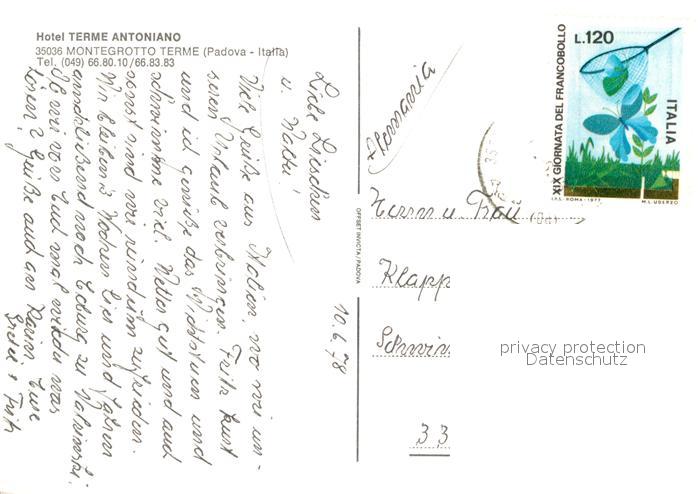 Hotel TERME ANTONIANO
35036 MONTEGROTTO TERME (Padova - Italia)
Tel. (049) 66.80.10/66.83.83
10.6.78
Liebe Lieschen
u. Walter!
Viele Grüße aus Italien, wo wir un-
seren Urlaub verbringen. Fritz kurt
und ich genieße das Nichtstun und
schwimme viel. Wetter gut und auch
sonst sind wir rundum zufrieden.
Wir bleiben 3 Wochen hier und fahren
anschließend noch Coburg zu
wir vor Jud mal wieder was
hören? Grüße auch an Karin Eure
Gretel + Fritz
OFFSET INVICTA/PADOVA
Germania
Herrn u. Frau
Klapp
Schwin
33
XIX GIORNATA DEL FRANCOBOLLO
L.120
ITALIA
I.P.S. ROMA - 1977
M.L. UBERZO
privacy protection
Datenschutz